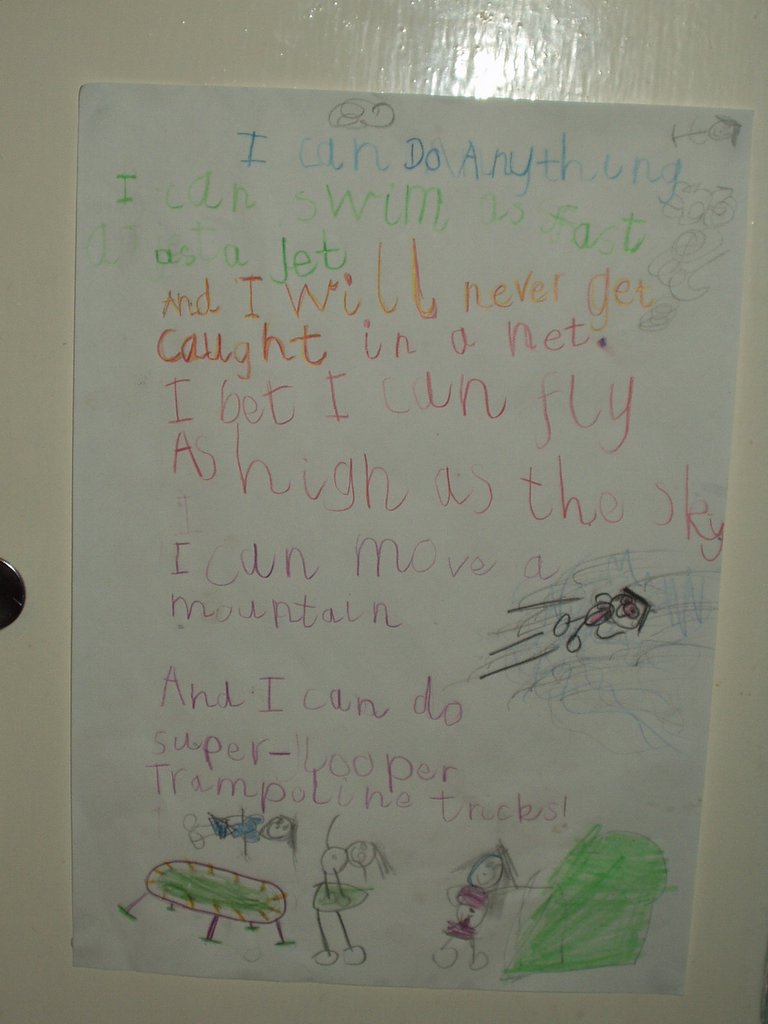 I can Do Anything
I can swim as fast
as a Jet
And I will never get
caught in a net.
I bet I can fly
As high as the sky
I can move a
mountain
And I can do
super-looper
Trampoline tricks!